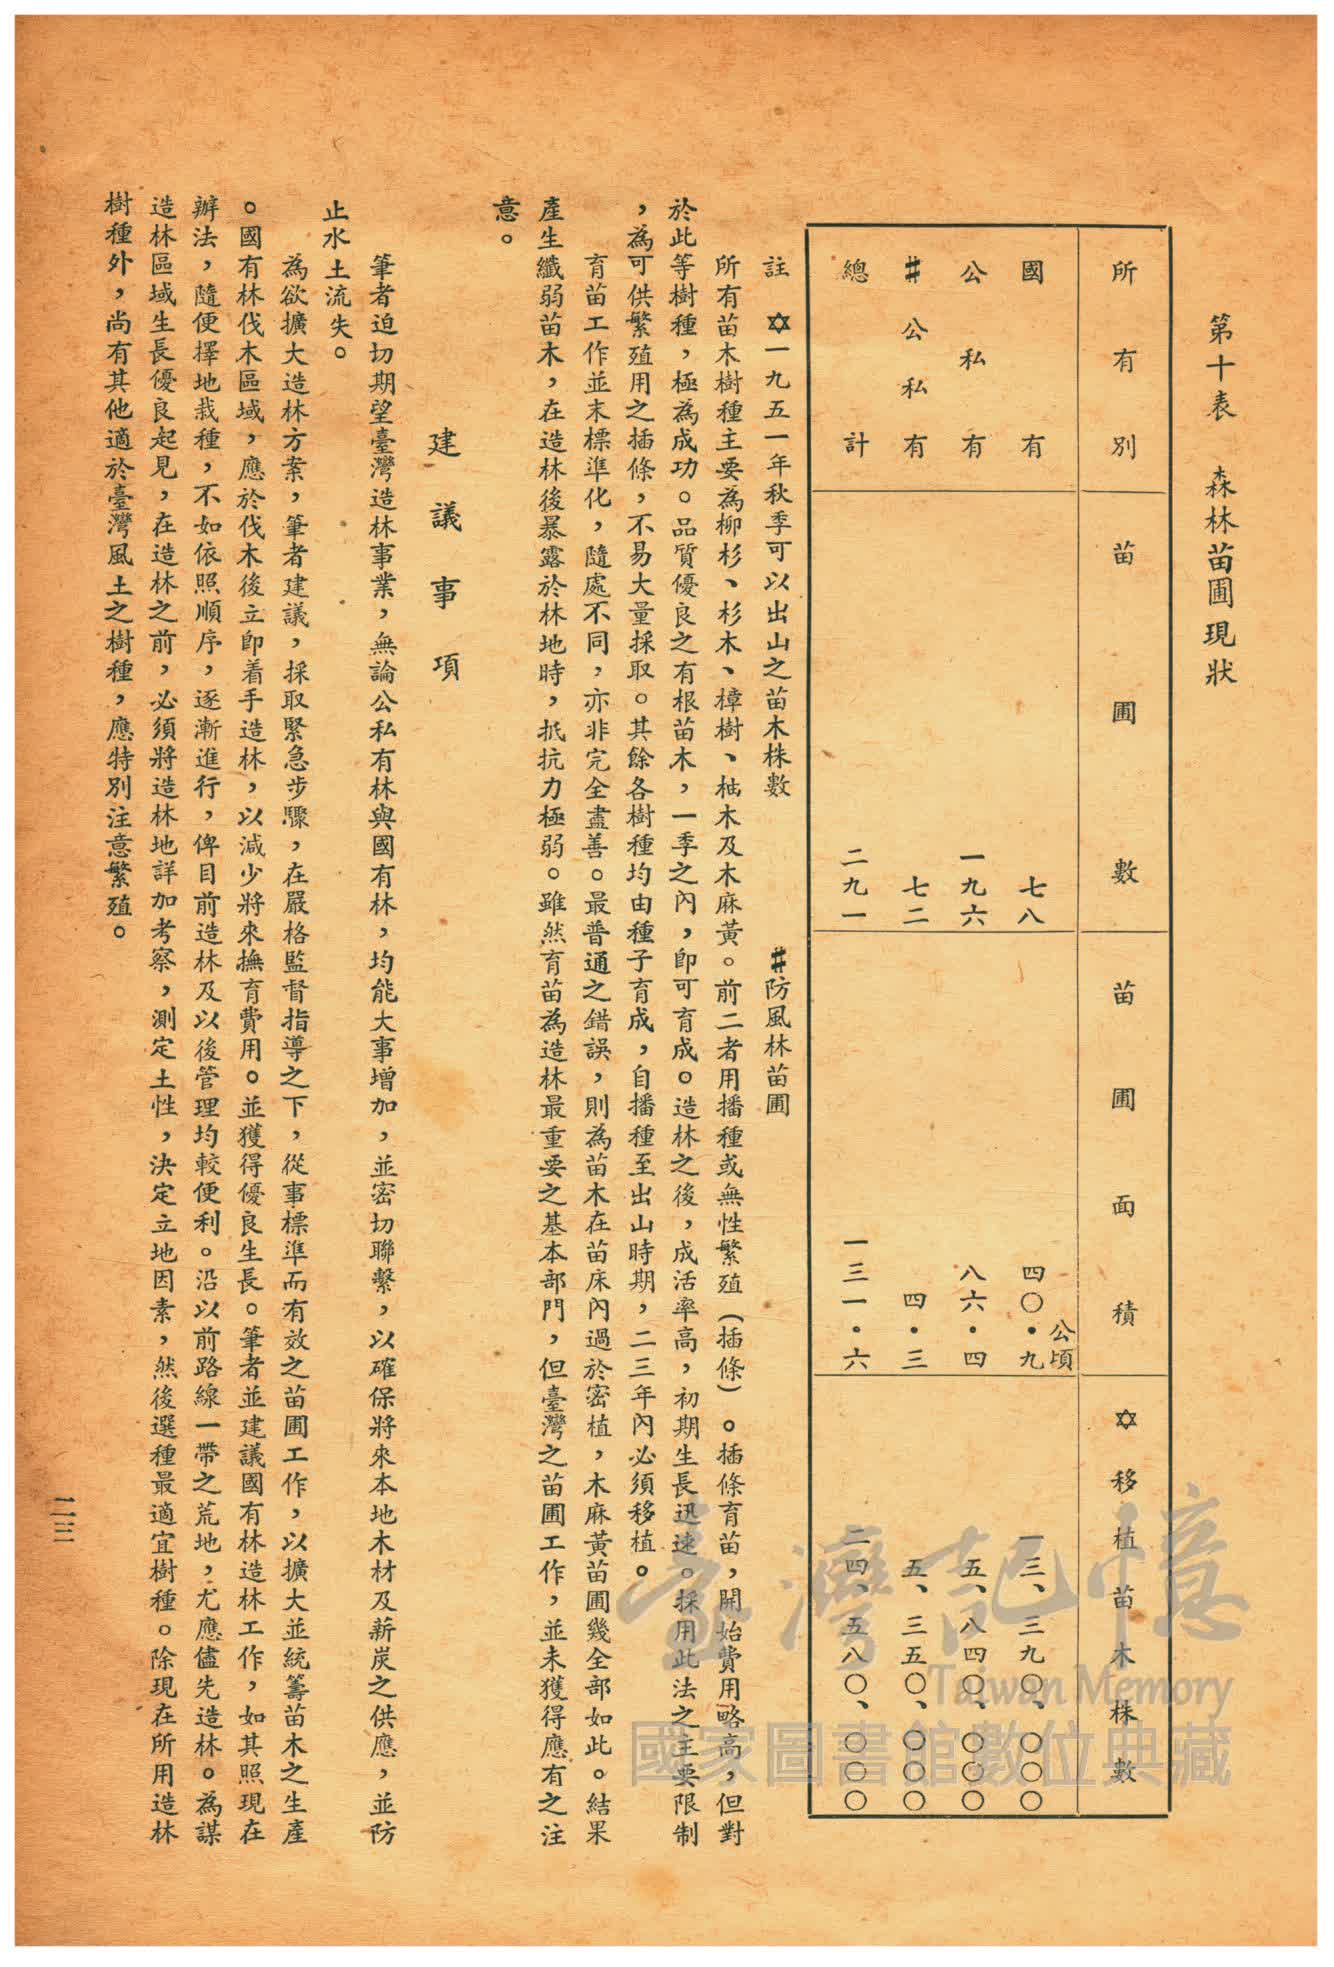 第十表　森林苗圃現狀
所有別　苗圃數　苗圃面積　✡移植苗木株數
國有　七八　四〇・九公頃　一三、三九〇、〇〇〇
公私有　一九六　八六・四　五、八四〇、〇〇〇
#公私有　七二　四・三　五、三五〇、〇〇〇
總計　二九一　一三一・六　二四、五八〇、〇〇〇
註　✡一九五一年秋季可以出山之苗木株數　#防風林苗圃
所有苗木樹種主要為柳杉、杉木、樟樹、柚木及木麻黃。前二者用播種或無性繁殖（插條）。插條育苗，開始費用略高，但對
於此等樹種，極為成功。品質優良之有根苗木，一季之內，即可育成。造林之後，成活率高，初期生長迅速。採用此法之主要限制
，為可供繁殖用之插條，不易大量採取。其餘各樹種均由種子育成，自播種至出山時期，二三年內必須移植。
育苗工作並末標準化，隨處不同，亦非完全盡善。最普通之錯誤，則為苗木在苗床內過於密植，木麻黃苗圃幾全部如此。結果
產生纖弱苗木，在造林後暴露於林地時，抵抗力極弱。雖然育苗為造林最重要之基本部門，但臺灣之苗圃工作，並未獲得應有之注
意。
建議事項
筆者迫切期望臺灣造林事業，無論公私有林與國有林，均能大事增加，並密切聯繫，以確保將來本地木材及薪炭之供應，並防
止水土流失。
為欲擴大造林方案，筆者建議，採取緊急步驟，在嚴格監督指導之下，從事標準而有效之苗圃工作，以擴大並統籌苗木之生產
。國有林伐木區域，應於伐木後立即着手造林，以減少將來撫育費用。並獲得優良生長。筆者並建議國有林造林工作，如其照現在
辦法，隨便擇地栽種，不如依照順序，逐漸進行，俾目前造林及以後管理均較便利。沿以前路線一帶之荒地，尤應儘先造林。為謀
造林區域生長優良起見，在造林之前，必須將造林地詳加考察，測定土性，決定立地因素，然後選種最適宜樹種。除現在所用造林
樹種外，尚有其他適於臺灣風土之樹種，應特別注意繁殖。
二三
臺灣記憶
Taiwan Memory
國家圖書館數位典藏